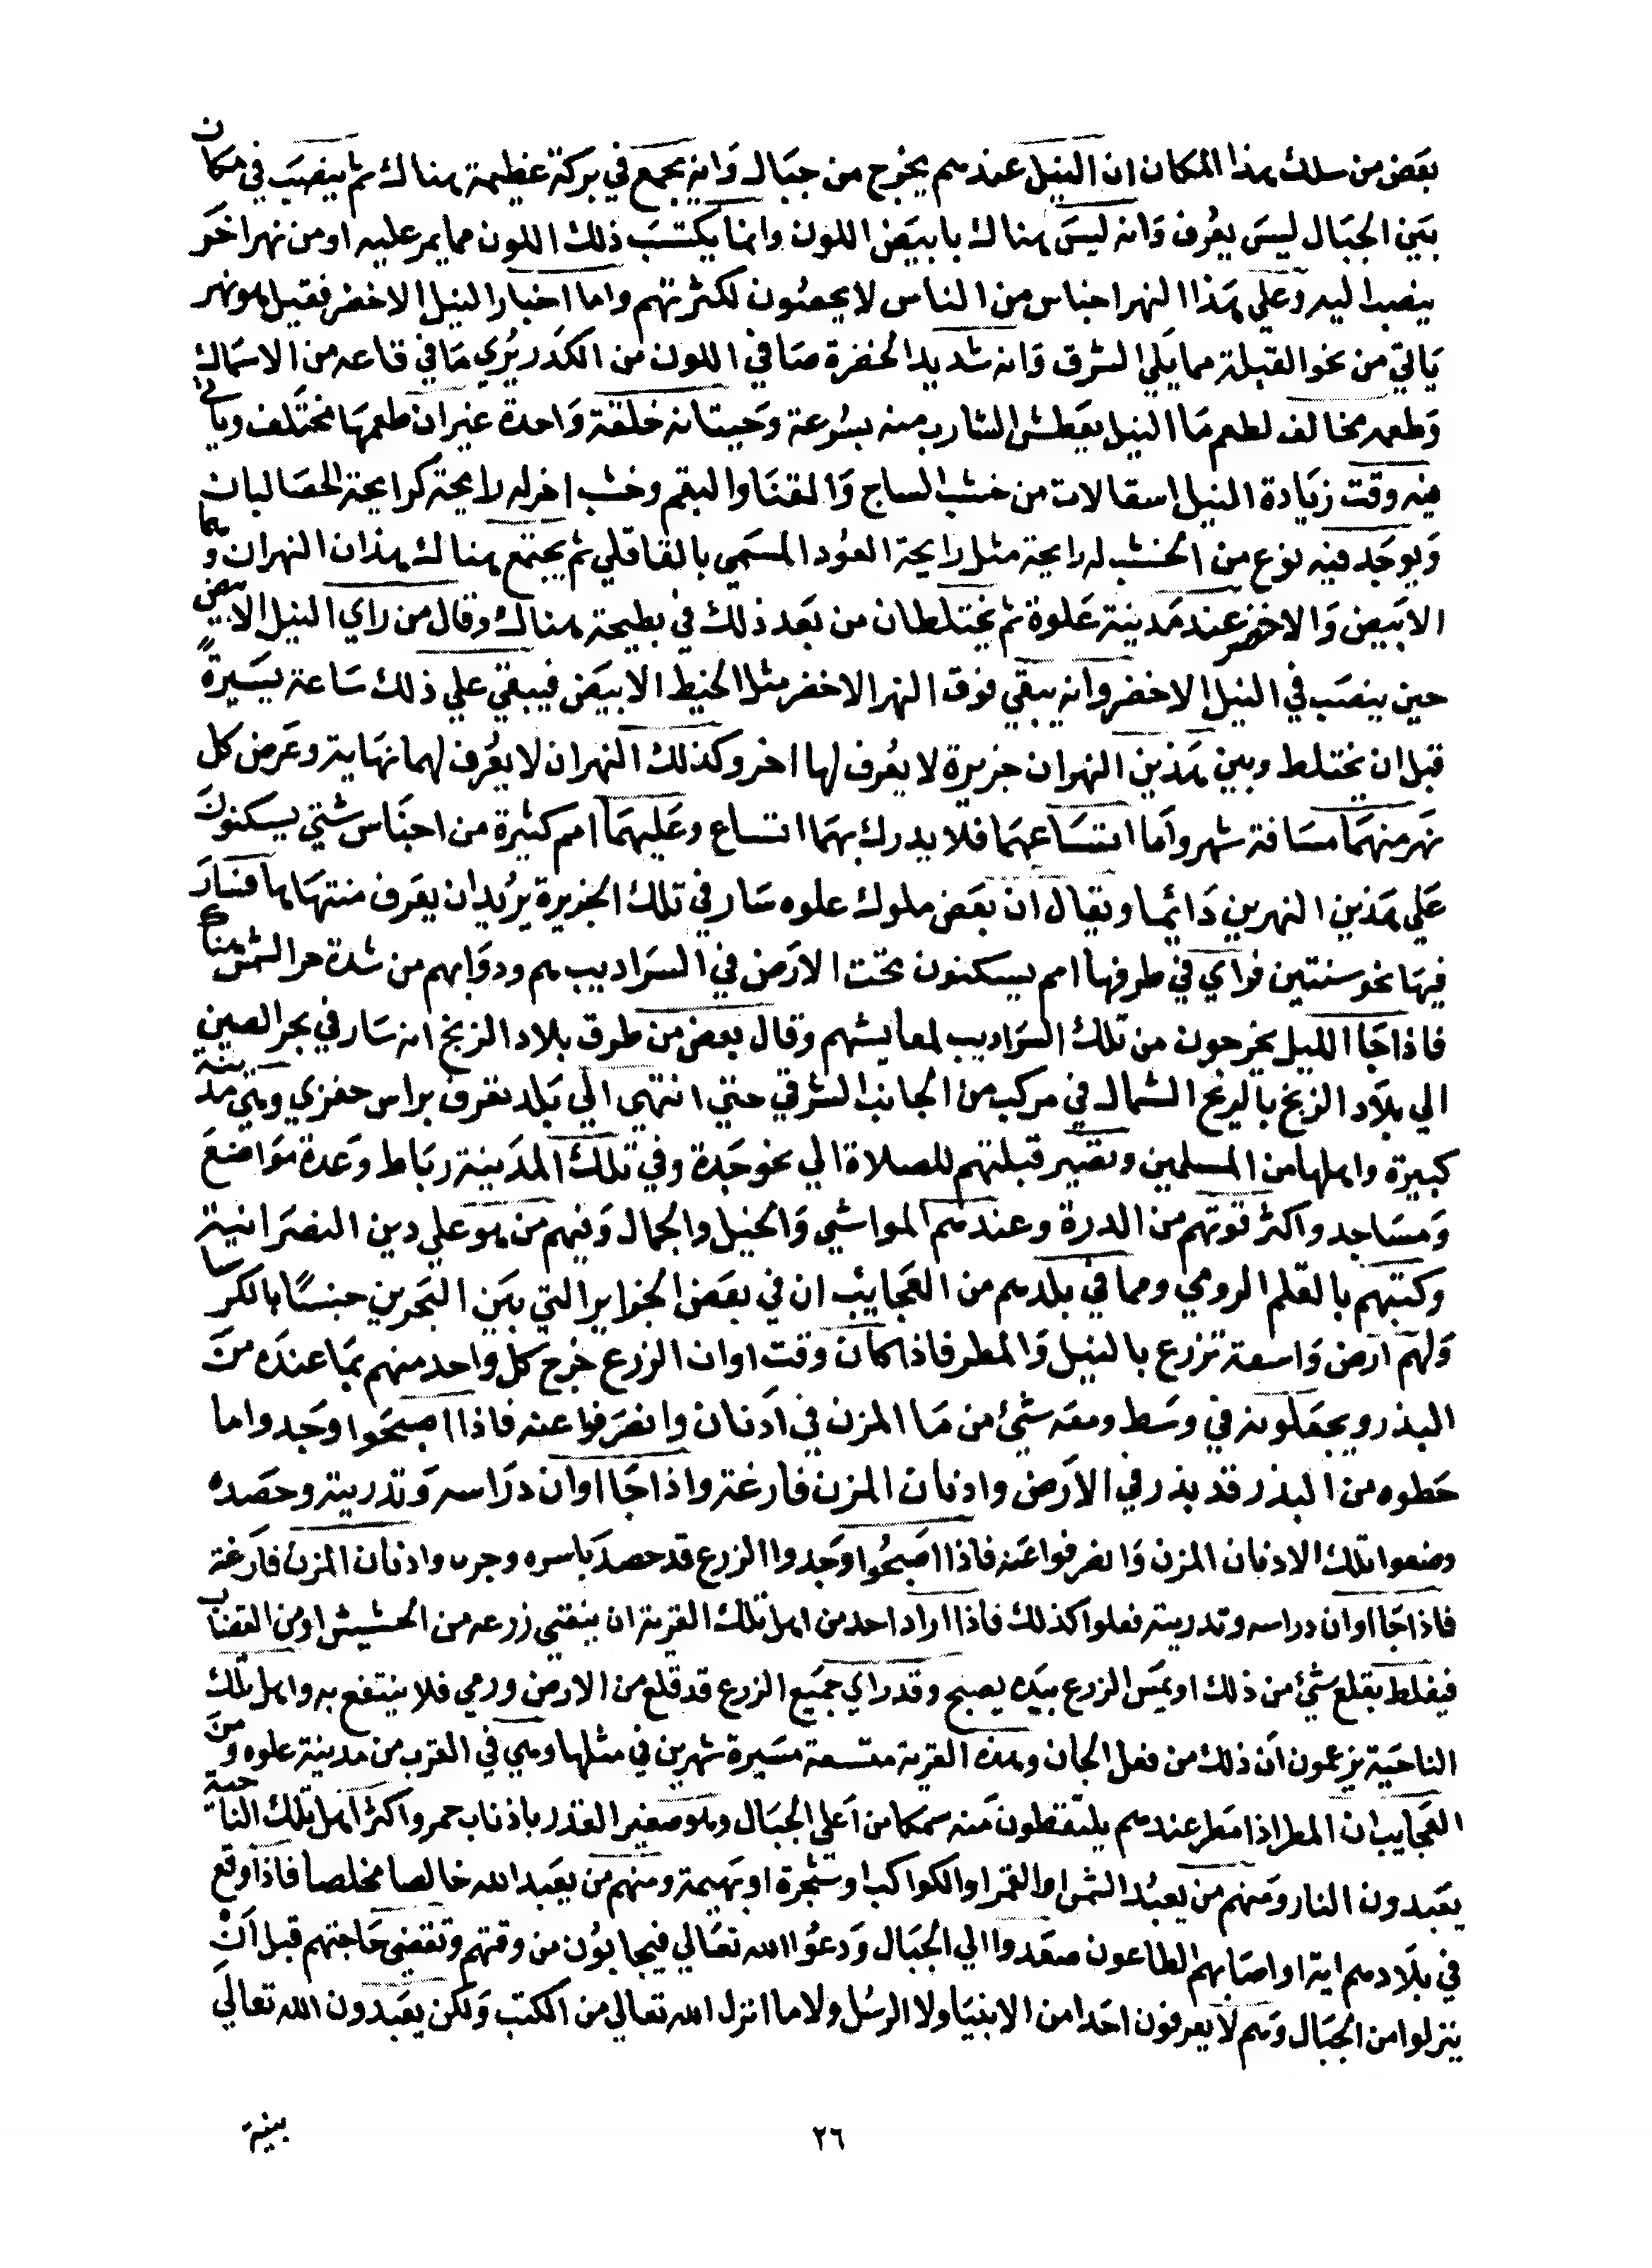 بعض من سلك هذا المكان ان النيل عندهم يخرج من جبال وانه يجمع في بركة عظيمة هناك ثم ينصب في مكان
بين الجبال ليس يعرف وانه ليس هناك بابيض اللون وانما يكتسب ذلك اللون مما يمر عليه او من نهر اخر
ينصب اليه وعلي هذا النهر اجناس من الناس لا يحصون لكثرتهم واما اخبار النيل الاخضر فقيل هو نهر
ياتي من نحو القبلة مما يلي الشرق وانه شديد الخضرة صافي اللون من الكدر يري ما في قاعه من الاسماك
وطعمه مخالف لطعم ما النيل يعطش الشارب منه بسرعة وحيتانه خلقة واحدة غير ان طعمها مختلف وياتي
فيه وقت زيادة النيل اسقالات من خشب الساج والقنا والبقم وخشب اخر له رايحة كرايحة الحصالبان
ويوجد فيه نوع من الخشب له رايحة مثل رايحة العود المسمي بالقاقلي ثم يجتمع هناك هذان النهران وهما
الابيض والاخضر عند مدينة علوة ثم يختلطان من بعد ذلك في بطيحة هناك وقال من راي النيل الابيض
حين ينصب في النيل الاخضر وانه يبقي فوق النهر الاخضر مثل الخيط الابيض فيبقي علي ذلك ساعة يسيرة
قبل ان يختلط وبين هذين النهران جزيرة لا يعرف لها اخر وكذلك النهران لا يعرف لهما نهاية وعرض كل
نهر منهما مسافة شهر واما اتساعهما فلا يدرك بهما اتساع وعليهما امم كثيرة من اجناس شتي يسكنون
علي هذين النهرين دائما ويقال ان بعض ملوك علوه سار في تلك الجزيرة يريد ان يعرف منتهاها فسار
فيها نحو سنتين فراي في طرفها امم يسكنون تحت الارض في السراديب هم ودوابهم من شدة حر الشمس هناك
فاذا جا الليل يخرجون من تلك السراديب لمعايشهم وقال بعض من طرق بلاد الزنج انه سار في بحر الصين
الي بلاد الزنج بالريح الشمال في مركب من الجانب الشرقي حتي انتهي الي بلد تعرف براس حفري وهي مدينة
كبيرة واهلها من المسلمين وتصير قبلتهم للصلاة الي نحو جدة وفي تلك المدينة رباط وعدة مواضع
ومساجد واكثر قوتهم من الدرة وعندهم المواشي والخيل والجمال وفيهم من هو علي دين النصرانية
وكتبهم بالقلم الرومي ومما في بلدهم من العجايب ان في بعض الجزاير التي بين البحرين جنسا بالكرسا
ولهم ارض واسعة تزرع بالنيل والمطر فاذا كان وقت اوان الزرع خرج كل واحد منهم بما عنده من
البذر ويجعلونه في وسط ومعه شئ من ما المزن في ادنان وانصرفوا عنه فاذا اصبحوا وجدوا ما
حطوه من البذر قد بذر في الارض وادنان المزن فارغة واذا جا اوان دراسه وتدريته وحصده
وضعوا تلك الادنان المزن وانصرفوا عنه فاذا اصبحوا وجدوا الزرع قد حصد باسره وجرن وادنان المزن فارغة
فاذا جا اوان دراسه وتدريته فعلوا كذلك فاذا اراد احد من اهل تلك القرية ان ينقي زرعه من الحشيش او من القضاب
فيغلط بقلع شئ من ذلك او يمس الزرع بيده يصبح وقد راي جميع الزرع قد قلع من الارض ورمي فلا ينتفع به واهل تلك
الناحية يزعمون ان ذلك من فعل الجان وهذه القرية متسعة مسيرة شهرين في مثلها وهي في القرب من مدينة علوه ومن
العجايب ان المطر اذا مطر عندهم يلتقطون منه سمكا من اعلي الجبال وهو صغير القدر باذناب حمر واكثر اهل تلك الناحية
يعبدون النار ومنهم من يعبد الشمس او القمر او الكواكب او شجرة او بهيمة ومنهم من يعبد الله خالصا مخلصا فاذا وقع
في بلادهم اية او اصابهم الطاعون صعدوا الي الجبال ودعوا الله تعالي فيجابون من وقتهم وتقضي حاجتهم قبل ان
ينزلوا من الجبال وهم لا يعرفون احدا من الانبيا ولا الرسل ولا ما انزل الله تعالي من الكتب ولكن يعبدون الله تعالي
بينة
٢٦